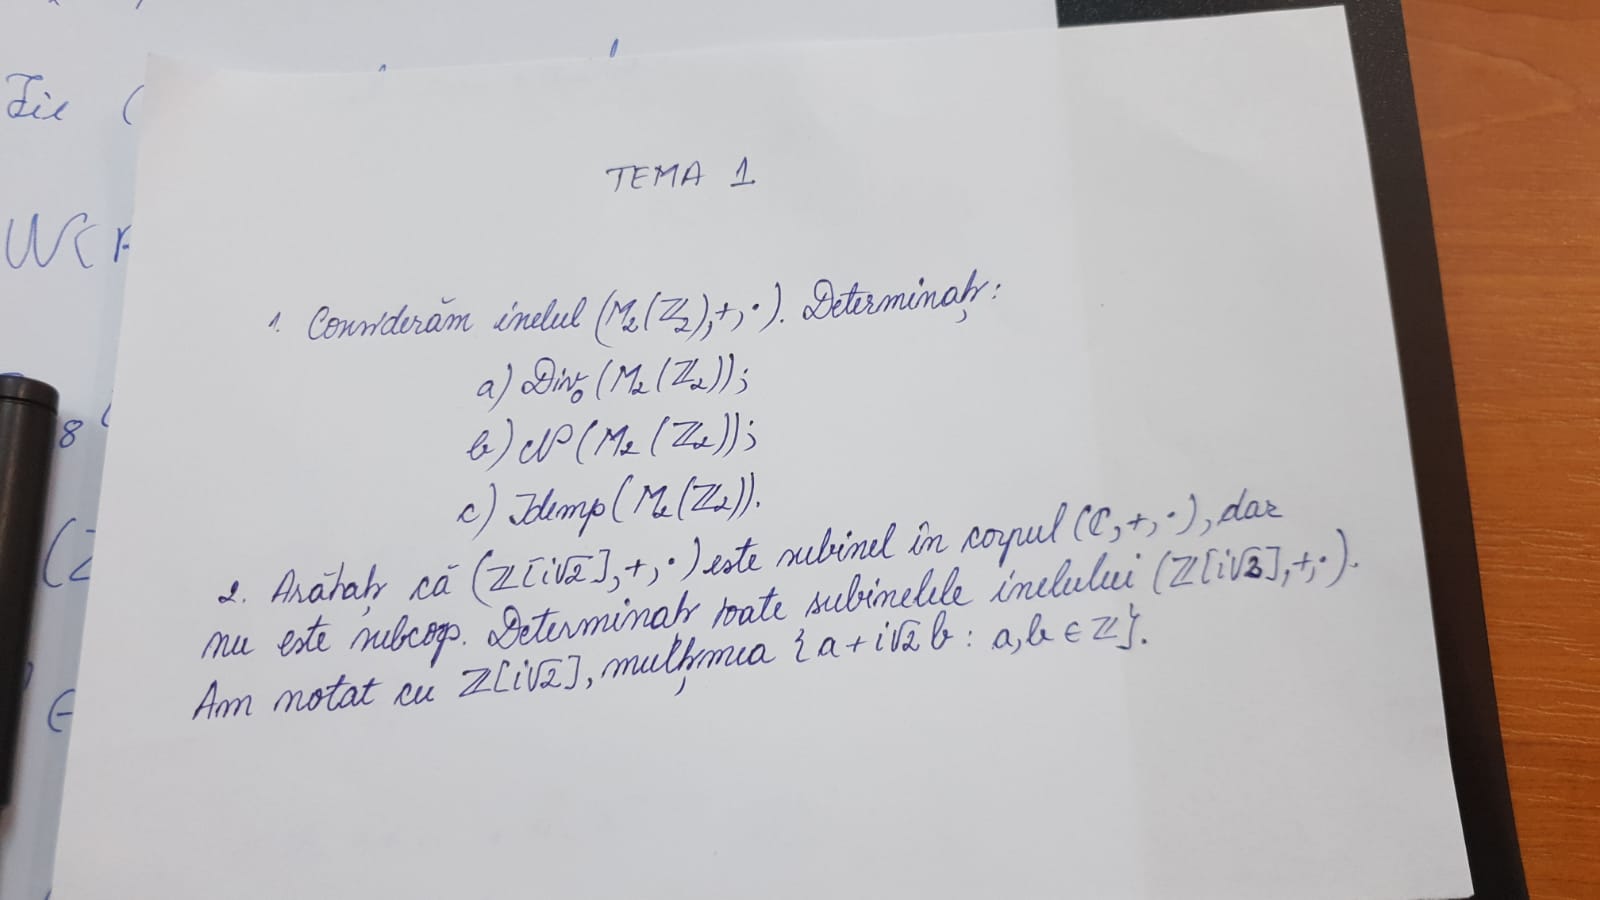 Fie (
W(A
8
(Z
∈
TEMA 1
1. Considerăm inelul (M₂(ℤ₂),+,·). Determinați:
a) Div₀(M₂(ℤ₂));
b) 𝒩(M₂(ℤ₂));
c) Idemp(M₂(ℤ₂)).
2. Arătați că (ℤ[i√2],+,·) este subinel în corpul (ℂ,+,·), dar
nu este subcorp. Determinați toate subinelele inelului (ℤ[i√2],+,·).
Am notat cu ℤ[i√2], mulțimea {a+i√2 b : a,b ∈ ℤ}.